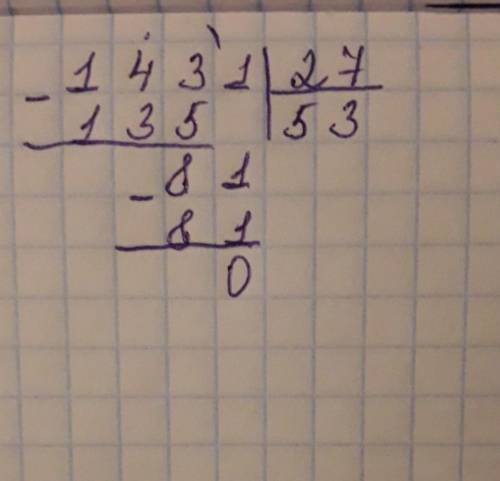 - 1431 | 27
135 | 53
- 81
81
0